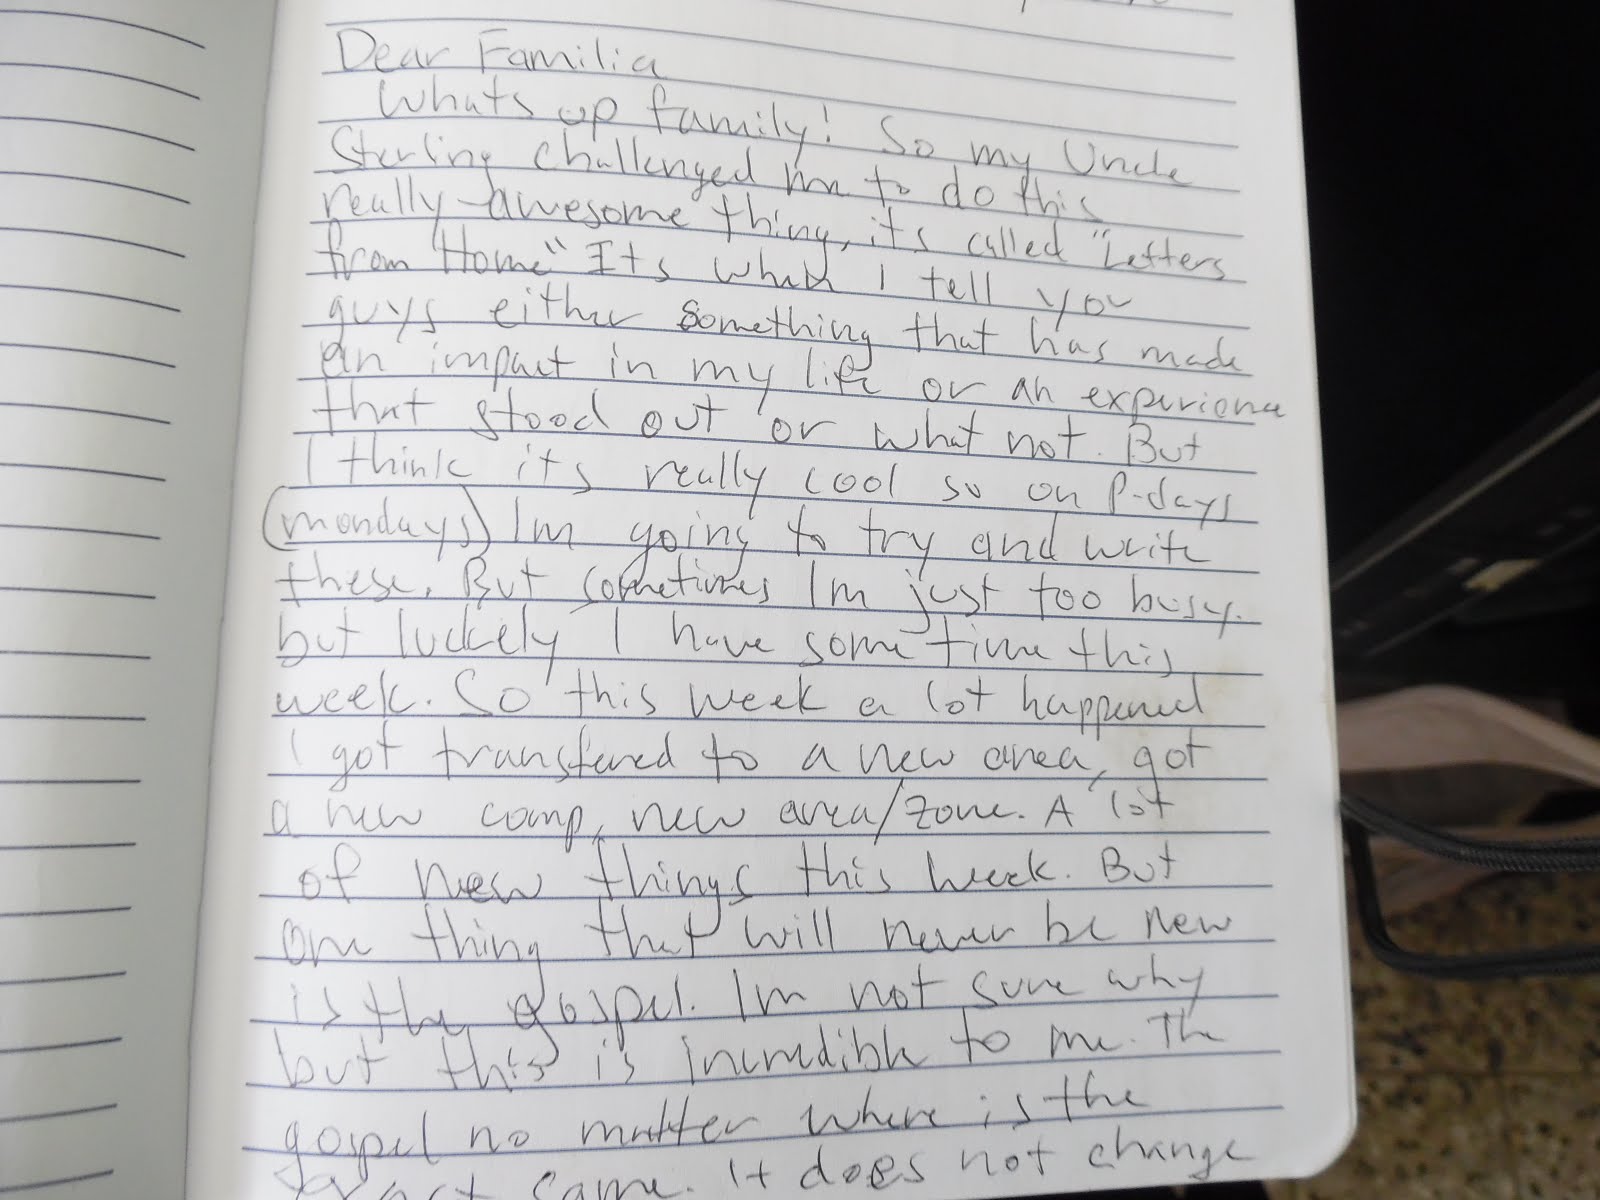 Dear Familia
Whats up family! So my Uncle
Sterling challenged me to do this
really awesome thing, its called "Letters
from Home" Its when I tell you
guys either something that has made
an impact in my life or an experience
that stood out or what not. But
I think its really cool so on P-days
(mondays) Im going to try and write
these. But sometimes Im just too busy.
but luckely I have some time this
week. So this week a lot happened
I got transfered to a new area, got
a new comp, new area/zone. A lot
of new things this week. But
one thing that will never be new
is the gospel. Im not sure why
but this is incredible to me. The
gospel no matter where is the
same. It does not change